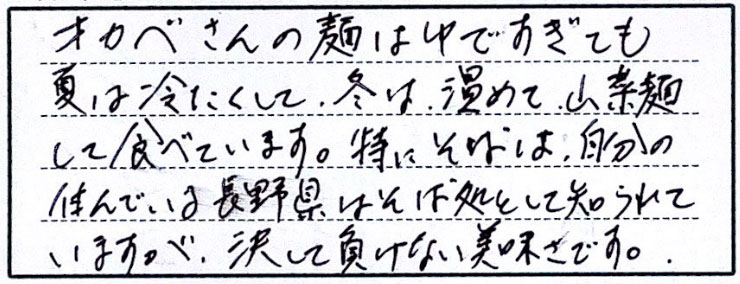 オカベさんの麺はゆですぎても
夏は冷たくして、冬は、温めて、山菜麺
して食べています。特にそばは、自分の
住んでいる長野県はそば処として知られて
いますが、決して負けない美味さです。